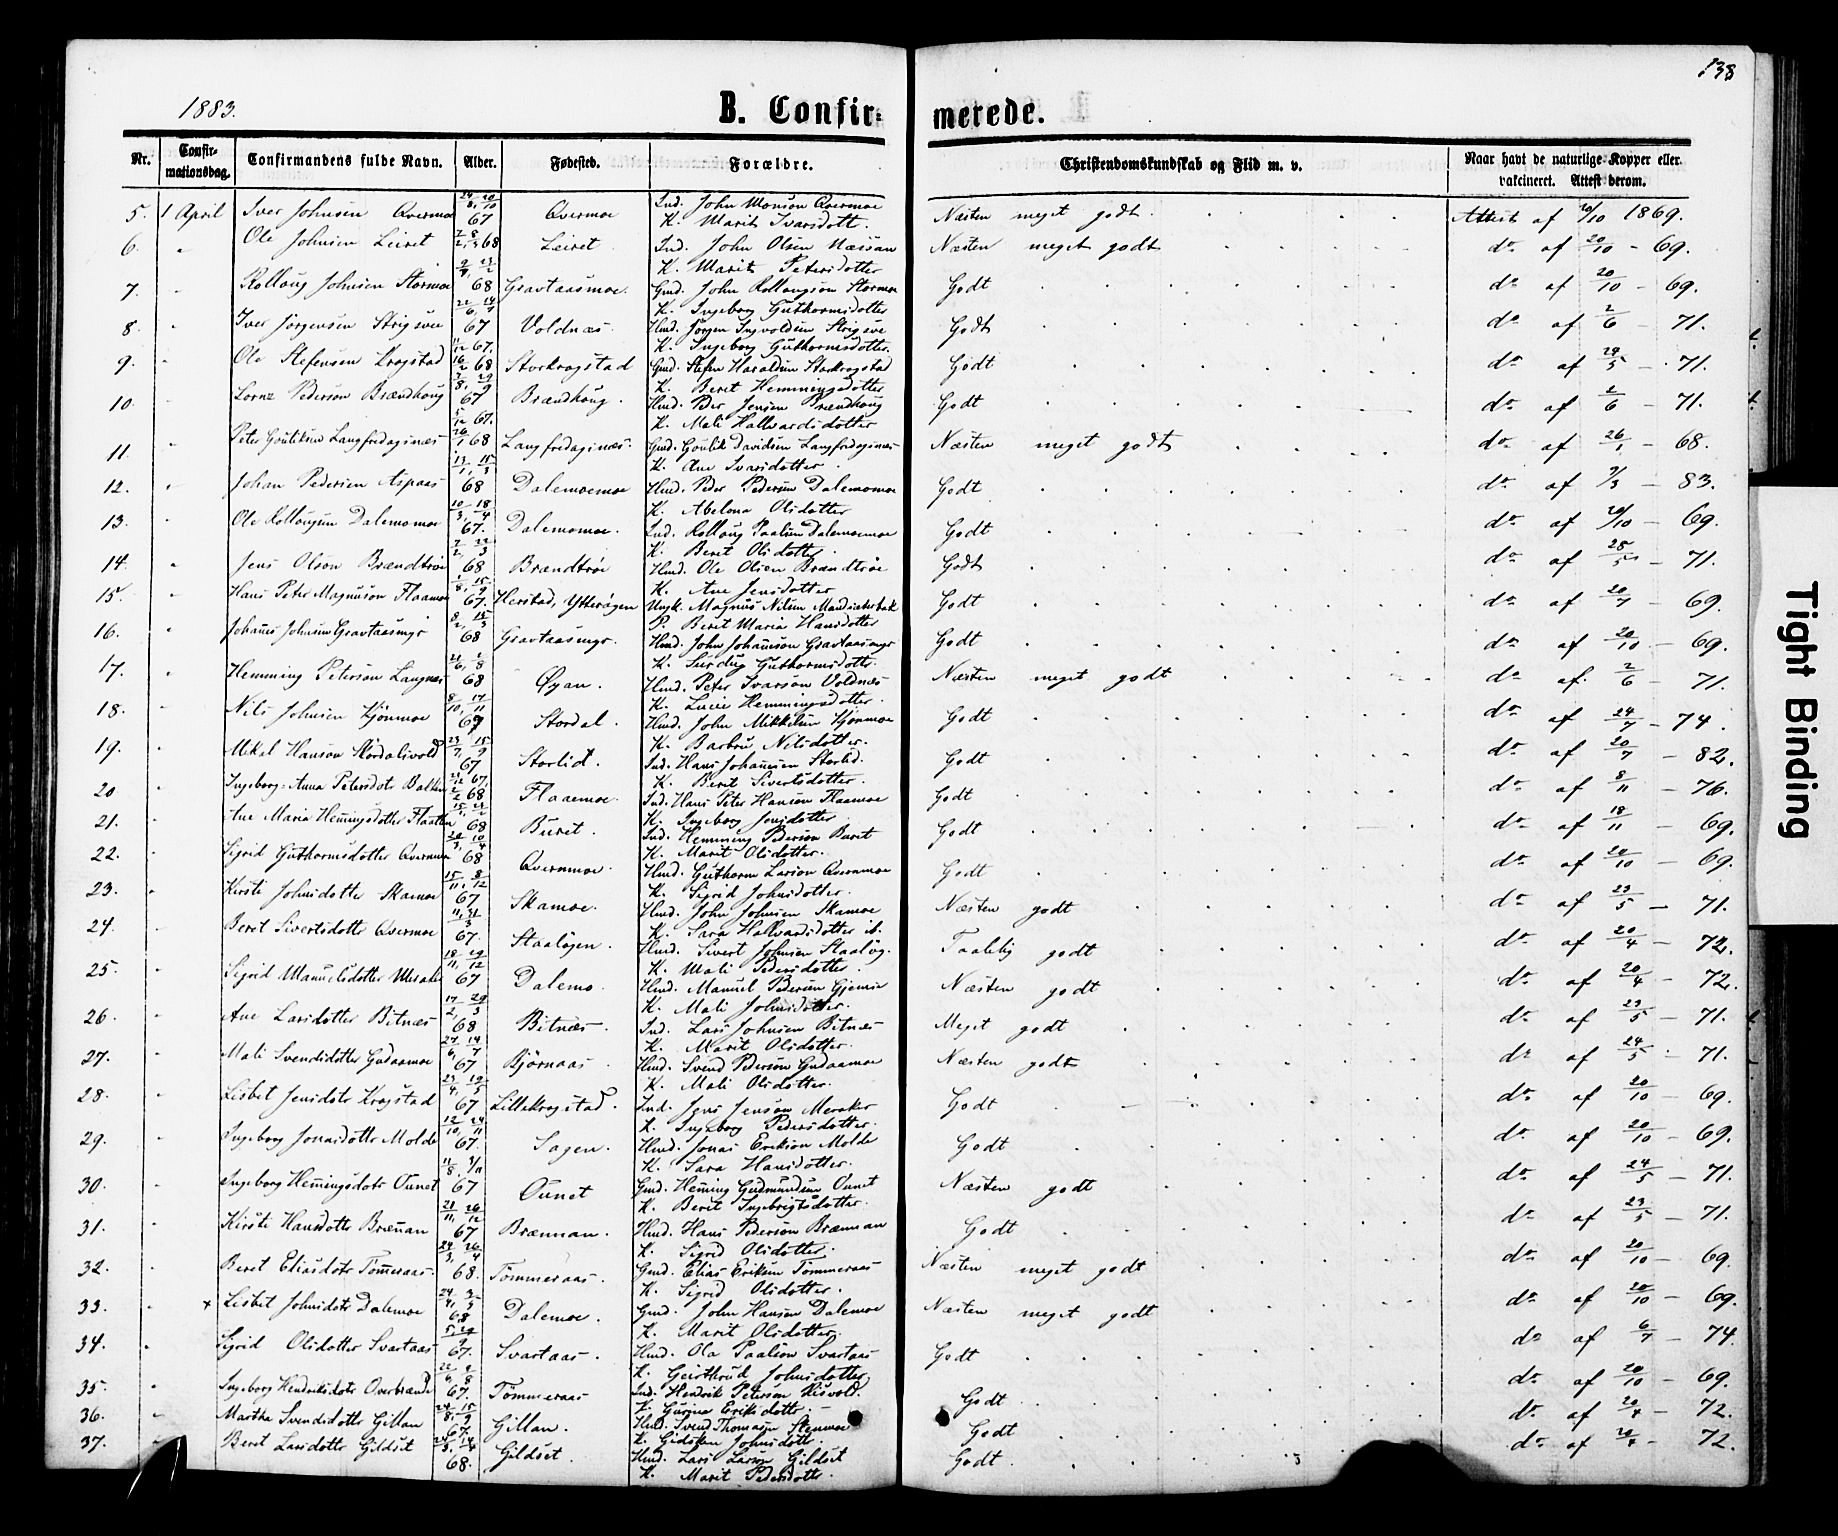 138
1883.
B. Confir=
merede.
Nr. Confir=mationsdag. Confirmandens fulde Navn. Alder. Fødested. Forældre. Christendomskundskab og Flid m. v. Naar havt de naturlige Kopper eller vakcineret. Attest derom.
5. 1 April Iver Johnsen Qvermoe 67 Qvermoe Ind. John Monson Qvermoe K. Marit Ivarsdott. Næsten meget godt Attest af 20/10 1869.
6. " Ole Johnsen Leiret 68 Leiret Ind. John Olsen Næssan K. Marit Petersdotter Næsten meget godt do af 20/10 - 69.
7. " Rolloug Johnsen Stormoe 68 Gravtaasmoe. Gmd. John Rollougson Stormoe K. Ingeborg Guthormsdotter Godt do af 20/10 - 69.
8. " Iver Jörgensen Strigsve 67 Voldnæs. Hmd. Jörgen Ingvoldsen Strigsve K. Ingeborg Guthormsdotter. Godt do af 2/6 - 71.
9. " Ole Stefensen Krogstad 68 Storkrogstad Gmd. Stefen Haraldsen Storkrogstad K. Beret Hemmingsdotter Godt do af 5 - 71.
10. " Lornz Pederson Brændhoug 67 Brændhoug. Hmd. Peder Jensen Brændhoug K. Mali Hallvardsdotter Godt do af 2/6 - 71.
11. " Peter Goutiksen Langfredagsnæs 26/1 68 Langfredagsnæs. Gmd. Goutik Davidsen Langfredagsnæs K. Ane Ivarsdotter Næsten meget godt do af 26/1 - 68.
12. " Johan Pedersen Aspaas 68 Dalemoemoe Hmd. Peder Pedersen Dalemomoe K. Abelona Olsdotter Godt do af 7/3 - 83.
13. " Ole Rollougsen Dalemomoe 67. Dalemomoe. Ind. Rolloug Paalsen Dalemoemoe K. Beret Olsdotter. Godt do af 20/10 - 69.
14. " Jens Olson Brændtröe 68 Brændtröe Hmd. Ole Olsen Brændtröe K. Ane Jensdotter Godt do af 25/5 - 71.
15. " Hans Peter Magnuson Flaamoe 67. Herstad, Ytterøgen Ungk. Magnus Nilsen P. Beret Maria Hansdotter Godt do af 20/7 - 69.
16. " Johanes Johnsen Gravtaasmyr 68 Gravtaasmyr. Hmd. John Johanson Gravtaasmyr K. Guthormsdottr. Godt do af 20/10 - 69.
17. " Hemming Peterson Langnes 68 Øyan. Hmd. Peter Ivarson Voldnæs K. Lucie Hemmingsdotter. Næsten meget godt do af. 2/6 - 71.
18. " Nils Johnsen Kjönmoe 67 Stordal. Hmd. John Mikkelsen Kjönmoe K. Barbru Nilsdotter. Godt do af 24/7 - 74.
19. " Mikal Hanson Stordalsvold 67 Storlid. Ind. Hans Johannsen Storlid. K. Berit Sivertsdotter. Godt do af 20/7 - 82.
20 " Ingeborg=Anna Petersdotr 68 Flaaemoe. Ind. Hans Peter Hanson Flaamoe K. Ingeborg Jensdotter Godt do af 8/11 - 76.
21. " Ane Maria Hemingsdotter Flaaten 68 Buret. Ind. Hemming Pederson Buret K. Marit Olsdotter. Godt do af 18/11 - 69.
22. " Sigrid Guthormsdotter Qvernmoe 68 Qvernmoe. Hmd. Guthorm Larson Qvernmoe K. Sigrid Johnsdotter. Godt do af 20/10 - 69.
23. " Kirsti Johnsdotter Skamoe 15/11, 8/12 67 Skamoe. Hmd. John Johnsen Skamoe K. Sara Hallvardsdotter ib. Næsten godt do af 23/5 - 71.
24. " Beret Sivertsdottr Qvermoe 67. Staalögen. Hmd. Sivert Johnsen Staalög. K. Mali Pedersdotter. Taalelig godt do af 20/4 - 72.
25. " Sigrid Manuelsdotter Meraker 67 Dalemo. Hmd. Manuel Pedersen K. Mali Johnsdotter. Næsten godt do af 20/4 - 72.
26. " Ane Larsdotter Bitnæs 68 Bitnæs. Ind. Lars Johnsen Bitnæs K. Marit Olsdotter. Meget godt do af 23/5 - 71.
27. " Mali Svendsdotter Gudaamoe 67 Björnaas. Hmd. Svend Pederson Gudaamoe K. Mali Olsdotter. Næsten godt do af 24/5 - 71.
28. " Lisbet Jensdotr Krogstad 67 Lillekrogstad. Ind. Jens Jenson Meraker K. Ingeborg Pedersdotter. Godt do af 20/10 - 69.
29. " Ingeborg Jonasdottr Molde 67. Sagen. Hmd. Jonas Erikson Molde K. Sara Hansdotter. Godt do af 20/10 - 69.
30. " Ingeborg Hemingsdotr Ounet 67 Ounet Gmd. Heming Gudmundsen Ounet K. Berit Ingebrigtsdotter. Næsten godt do af 24/5 - 71.
31. " Kirsti Hansdottr Brænnan 67 Brænnan. Hmd. Hans Pederson Brænnan K. Sigrid Olsdotter. Godt do af 23/5 - 71.
32. " Beret Eliasdotr Tömeraas 68. Tömmeraas. Gmd. Elias Eriksen Tömmeraas K. Sigrid Olsdotter. Næsten meget godt do af 20/10 - 69.
33. " x Lisbet Johnsdotr Dalemoe 68 Dalemoe. Gmd. John Hanson Dalemoe K. Marit Olsdotter. Næsten meget godt do af 20/10 - 69.
34. " Sigrid Olsdotter Svartaas 67. Svartaas. Hmd. Ola Paalson Svartaas K. Geirthrud Johnsdotter. Godt do af 6/7 - 74.
35. " Ingeborg Hendriksdotr Overbrænde 67. Tömmeraas Ind. Hendrik Peterson Risvold. K. Gurina Eriksdotter. Godt do af 20/10 - 69.
36. " Martha Svendsdotter Gillan 67. Gillan. Hmd. Svend Thomasen Stenmoe K. Gidsken Johnsdottr. Godt do af 20/4 - 72.
37. " Beret Larsdotter Gildset 68. Gildset. Hmd. Lars Larsen Gildset K. Marit Pedersdottr. Godt do af 20/4 - 72.
Tight Binding